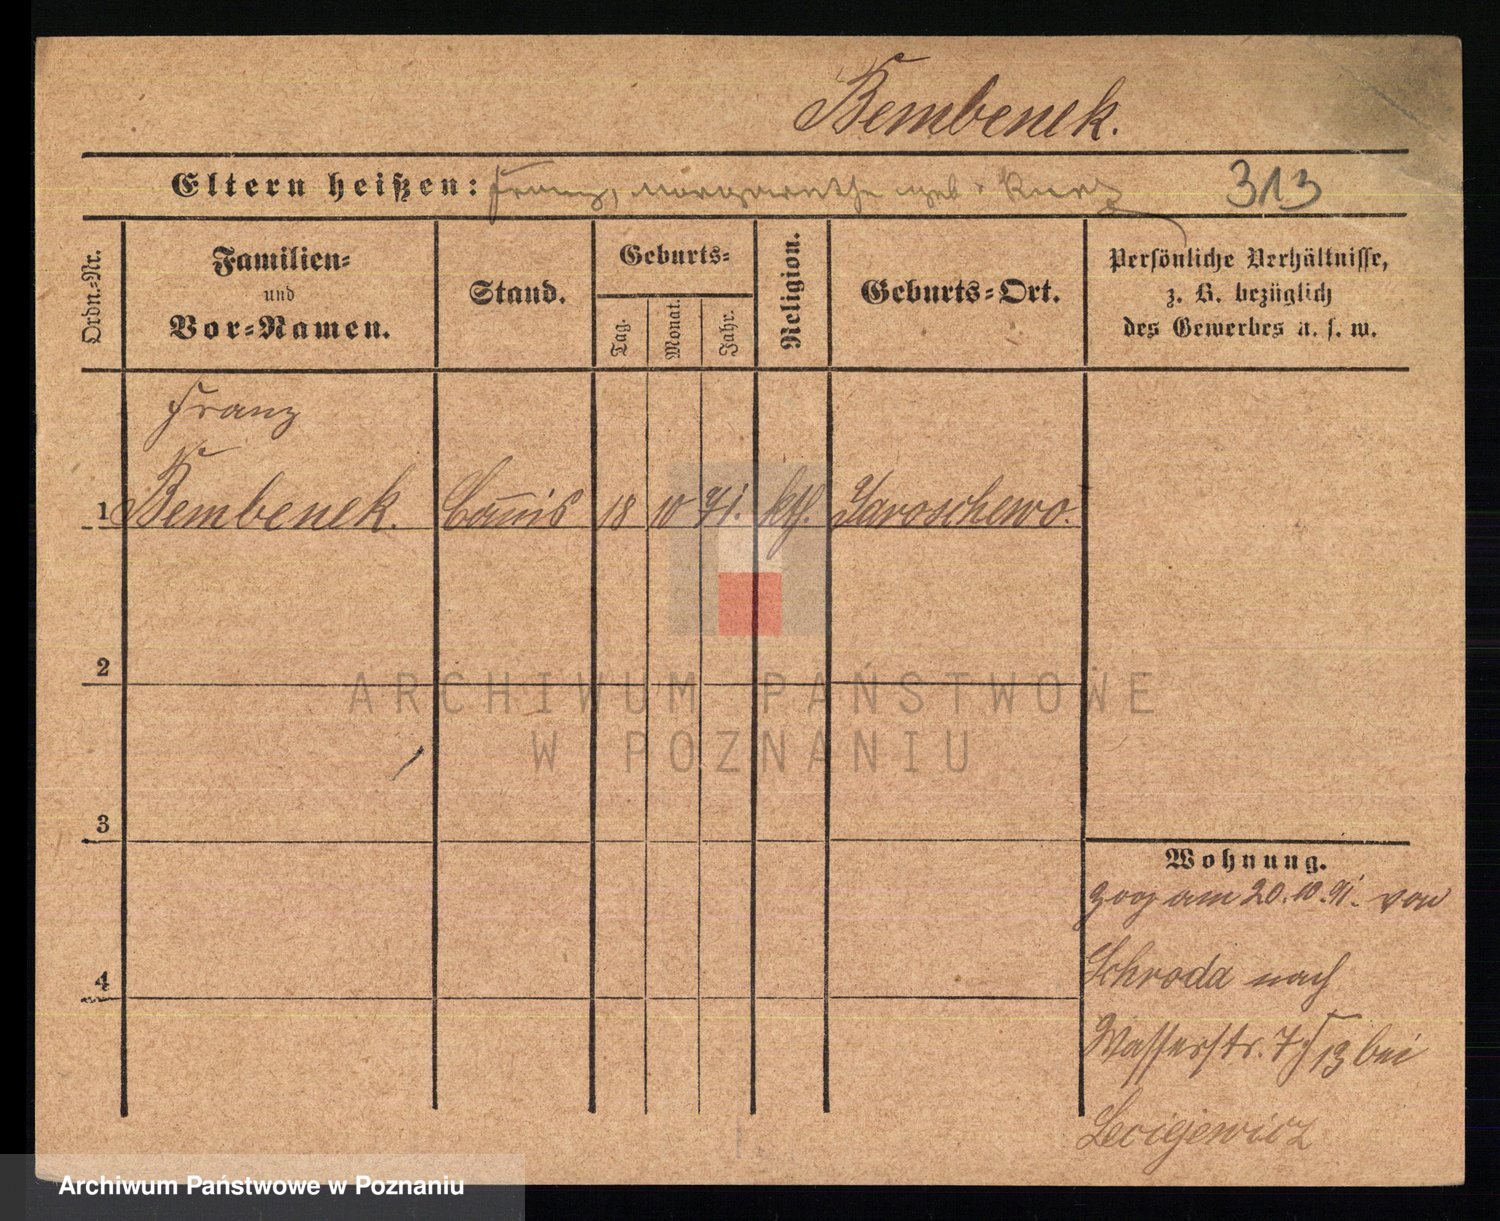 Bembenek.
Eltern heißen: Franz, Margarethe geb. 313
Ordn.-Nr.
Familien-
und
Vor-Namen.
Stand.
Geburts-
Tag.
Monat.
Jahr.
Religion.
Geburts-Ort.
Persönliche Verhältnisse,
z. B. bezüglich
des Gewerbes u. s. w.
Franz
1 Bembenek. Comis 18 10 71. kth. Jaroschewo.
2
3
4
Wohnung.
zog am 20.10.91. von
Schroda nach
Wasserstr. 7, bei
ARCHIWUM PAŃSTWOWE
W POZNANIU
Archiwum Państwowe w Poznaniu